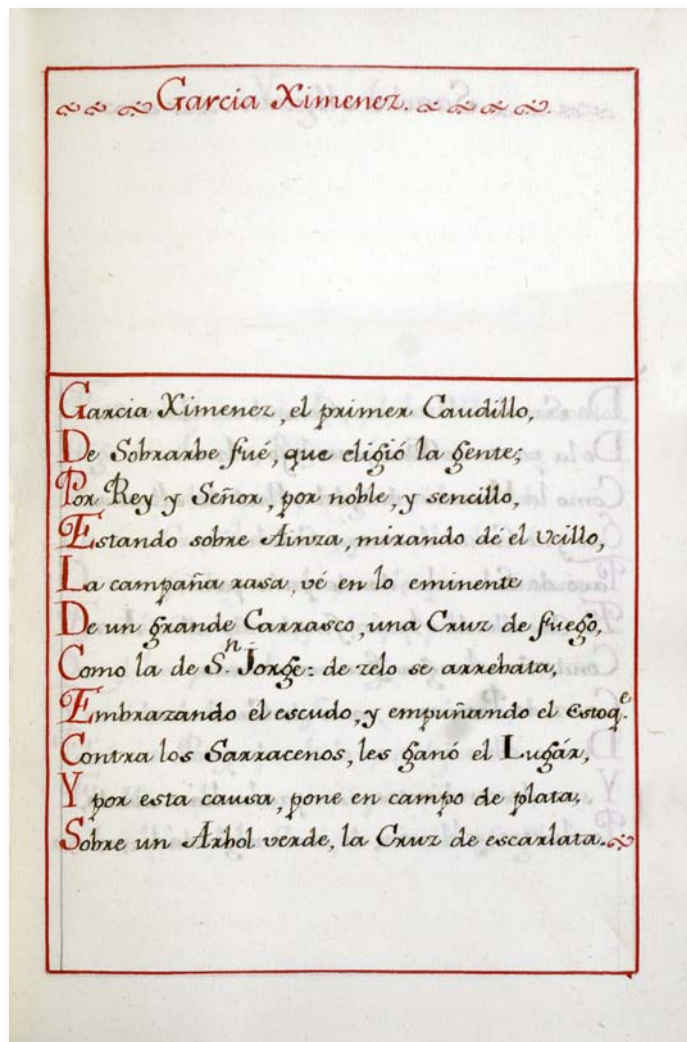 Garcia Ximenez.
Garcia Ximenez, el primer Caudillo,
De Sobrarbe fué, que eligió la gente;
Por Rey y Señor, por noble, y sencillo,
Estando sobre Ainza, mirando dé el Ucillo,
La campaña rasa, vé en lo eminente
De un grande Carrasco, una Cruz de fuego,
Como la de S.n Jorge: de zelo se arrebata,
Embrazando el escudo, y empuñando el Estoq.e
Contra los Sarracenos, les ganó el Lugár,
Y por esta causa, pone en campo de plata,
Sobre un Arbol verde, la Cruz de escarlata.